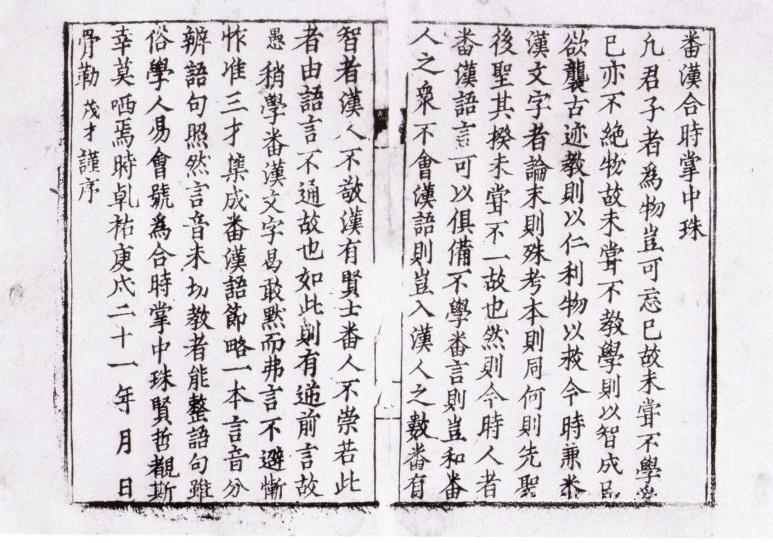 番漢合時掌中珠
凡君子者為物豈可忘己故未甞不學為
己亦不絕物故未甞不教學則以智成己
欲襲古迹教則以仁利物以救今時兼番
漢文字者論末則殊考本則同何則先聖
後聖其揆未甞不一故也然則今時人者
番漢語言可以俱備不學番言則豈和番
人之衆不會漢語則豈入漢人之數番有
智者漢人不敬漢有賢士番人不崇若此
者由語言不通故也如此則有逆前言故
愚稍學番漢文字曷敢默而弗言不避慚
怍准三才集成番漢語節略一本言音分
辨語句照然言音未切教者能整語句雖
俗學人易會號為合時掌中珠賢哲覩斯
幸莫哂焉時乾祐庚戌二十一年 月 日
骨勒 茂才謹序